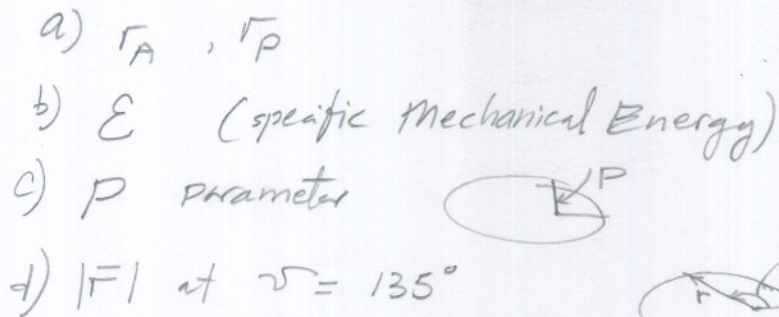 a) r_A , r_P
b) ε (specific Mechanical Energy)
c) P parameter P
d) |r̄| at ν = 135° r